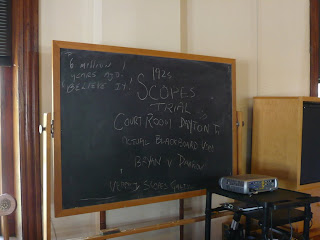 6 million
years ago.
BELIEVE IT!
1925
SCOPES
TRIAL
COURT ROOM DAYTON
ACTUAL BLACKBOARD
BRYAN V. DARROW
SCOPES